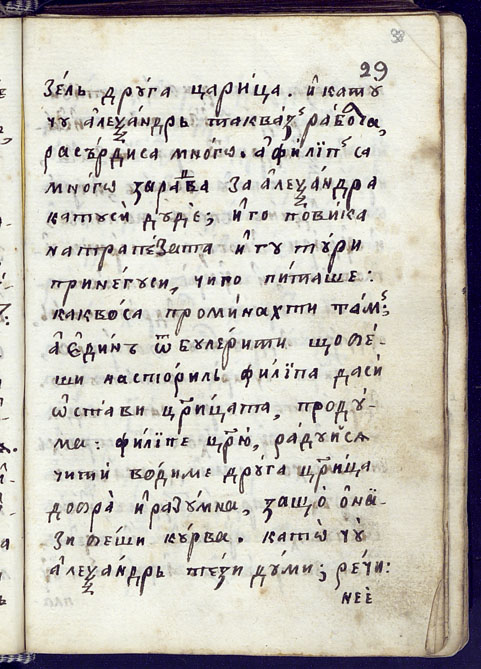 29
зе́ль дрꙋ́га цари́ца. и҆ катꙋ
чꙋ а҆леѯа́ндрь таквáз рабѡта,
расъ́рдиса мно́гѡ. а҆ филі́пъ са
мно́гѡ зарадва за а҆леѯа́ндра
катꙋси́ дѷде; и҆ го пови́ка
на трапе́зата и҆ гꙋ тꙋ́ри
при не́гꙋси, чи го пи́таше:
какво́са проми́нахти там;
а҆ є҆ди́нъ ѿ бꙋлери́ти що бе́-
ши насто́риль філі́па да си
ѡ҆ста́ви цр҃и́цата, продꙋ́-
ма: філі́пе цр҃ю́, ра́дꙋйсѧ
чити́ во́диме дрꙋ́га цр҃и́ца
добра̀ и҆ разꙋ́мна, защо̀ ѻ҆наѝ-
зи бе́ши кꙋ́рва. като̀ чꙋ̀
а҆леѯа́ндрь те́зи дꙋ́ми; ре́чи:
неѐ